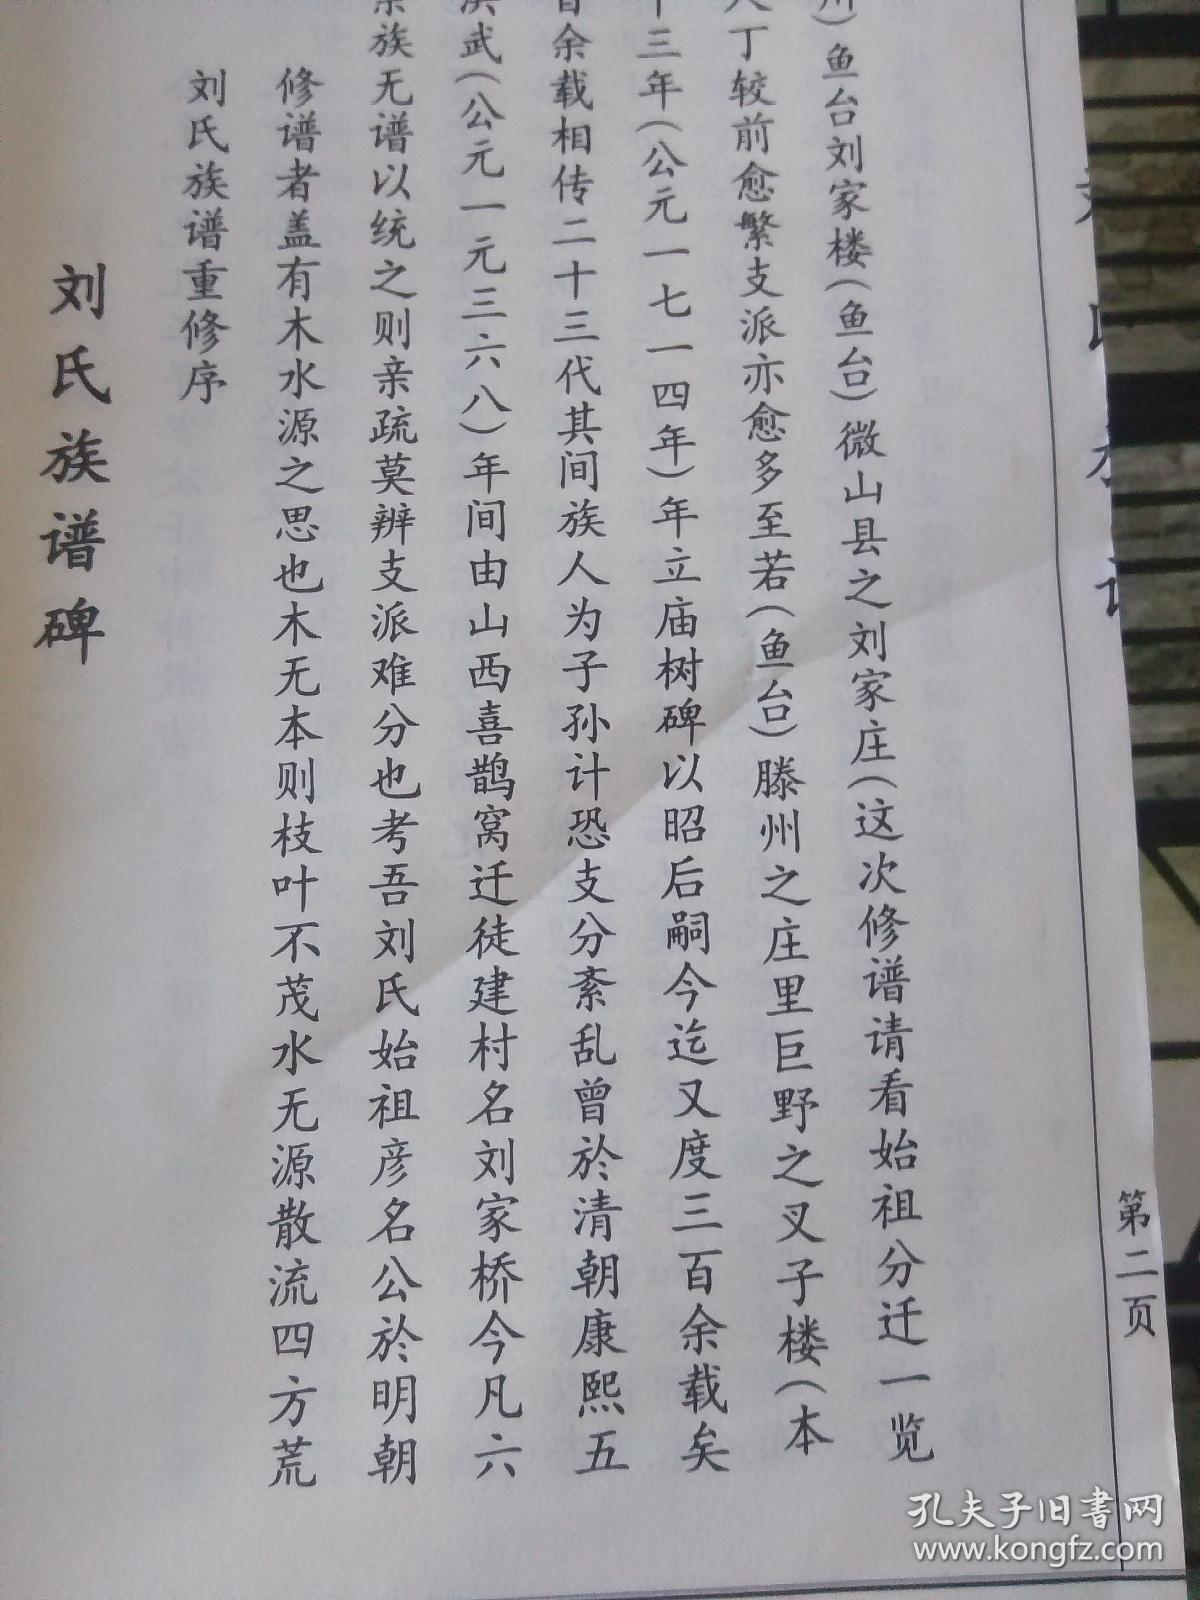 刘氏族谱碑
刘氏族谱重修序
修谱者盖有木水源之思也木无本则枝叶不茂水无源散流四方荒
族无谱以统之则亲疏莫辨支派难分也考吾刘氏始祖彦名公於明朝
洪武(公元一元三六八)年间由山西喜鹊窝迁徒建村名刘家桥今凡六
百余载相传二十三代其间族人为子孙计恐支分紊乱曾於清朝康熙五
十三年(公元一七一四年)年立庙树碑以昭后嗣今迄又度三百余载矣
人丁较前愈繁支派亦愈多至若(鱼台)滕州之庄里巨野之叉子楼(本
州)鱼台刘家楼(鱼台)微山县之刘家庄(这次修谱请看始祖分迁一览
第二页
孔夫子旧书网
www.kongfz.com